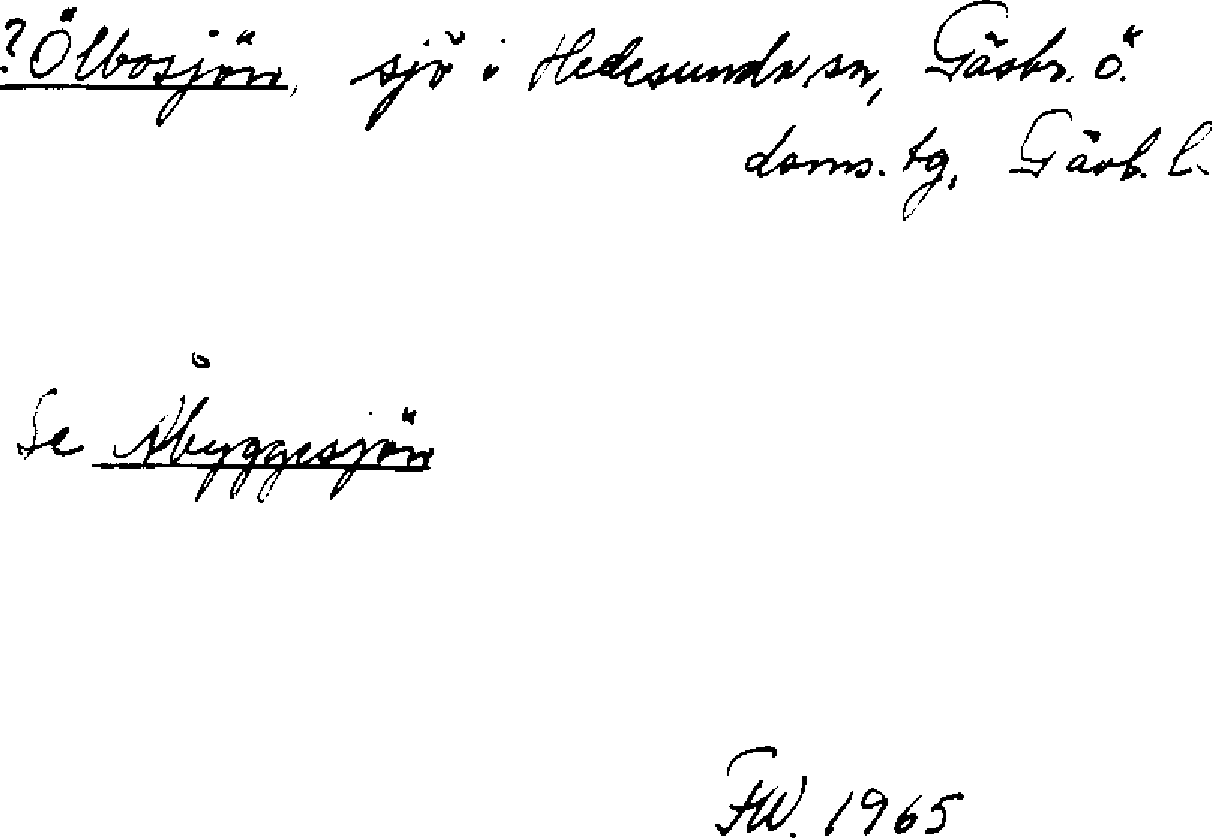 ?Ölbosjön, sjö i Hedesunda sn, Gästr. ö.
doms. tg, Gävb. l.
Se Åbyggesjön
FW. 1965